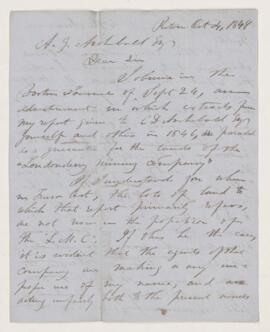 Pictou Oct 4, 1848
A. J. Archibald Esq
Dear Sir
I observe in the
Boston Journal of Sept 26, an
advertisement in which extracts from
my report given to C D Archibald Esq
himself and others in 1846, is paraded
as a guarantee for the lands of the
"Londonderry Mining Company"
If I understood you when
in Truro last, the lots of land to
which that report primarily refers,
are not now in the possession of
the L. M. C. If this be the case,
it is evident that the agents of the
company are making a very im-
proper use of my name, and are
acting unfairly both to the present owners